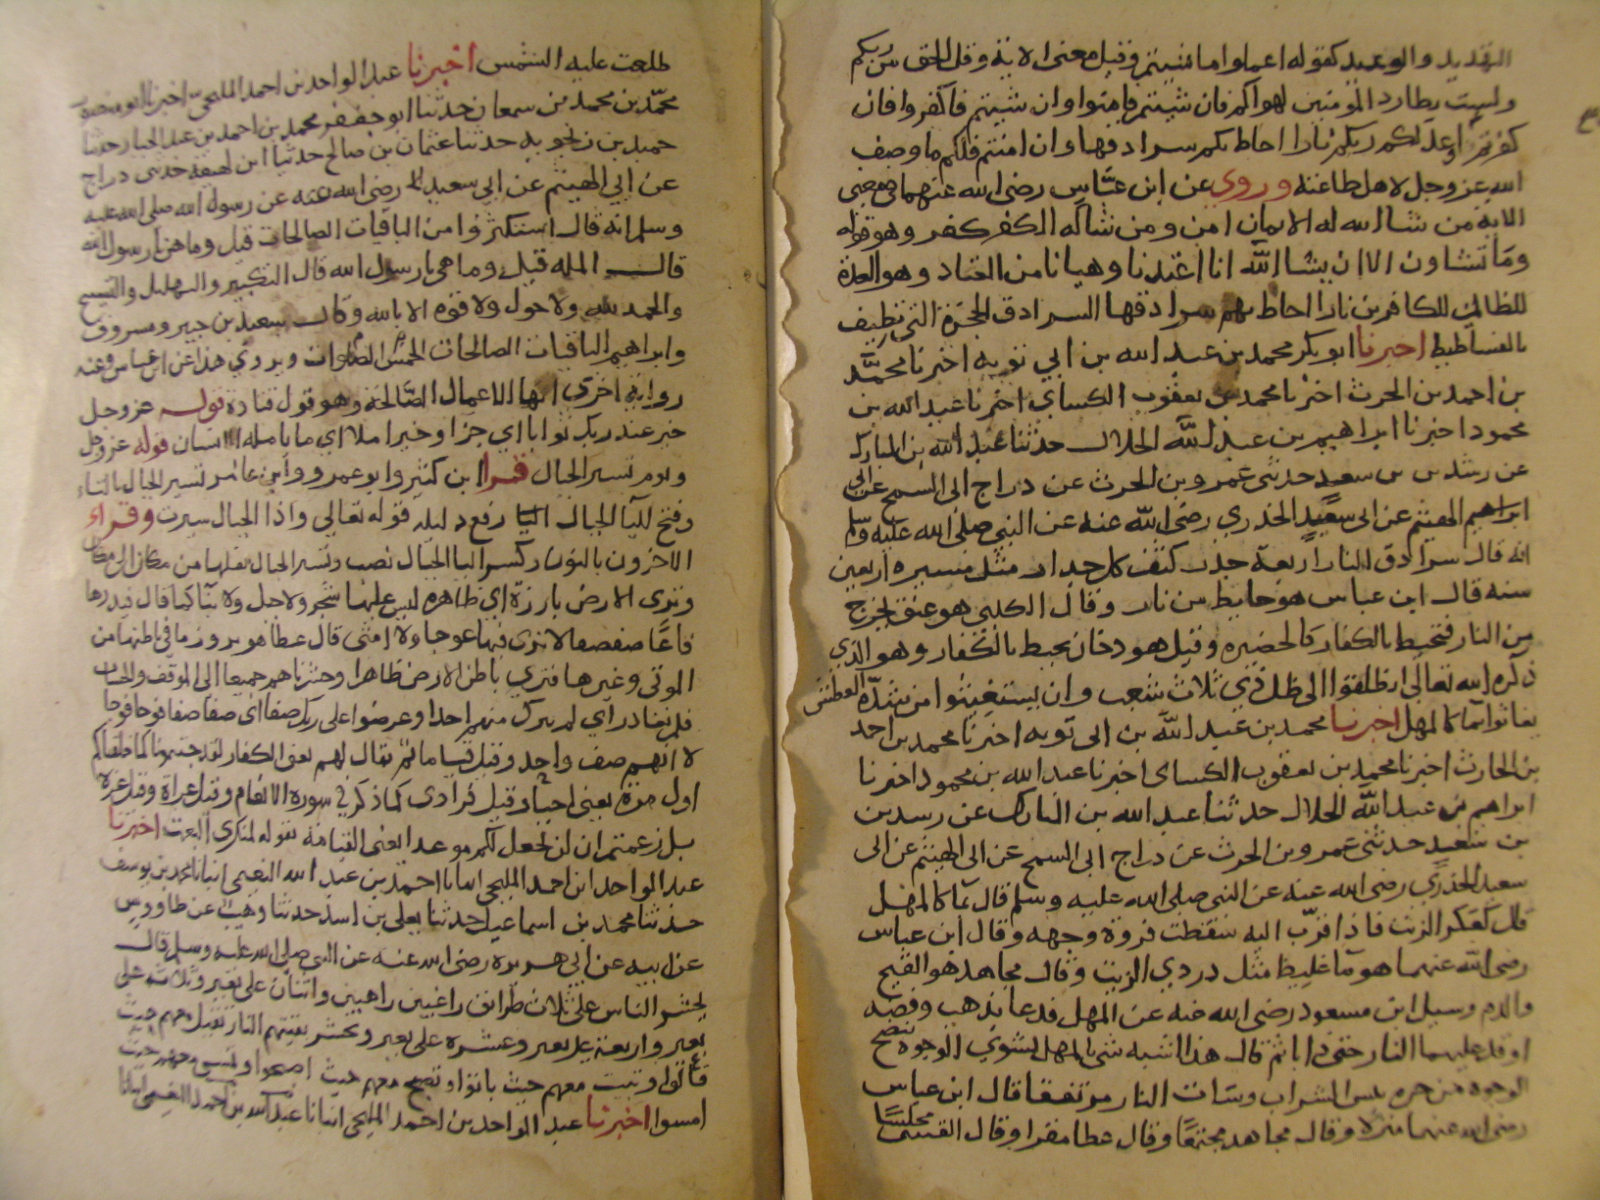 التهديد والوعيد كقوله اعملوا ما شيتم وقيل معنى الاية وقل الحق من ربكم
ولست بطارد المومنين لهواكم فان شيتم فامنوا وان شيتم فاكفروا فان
كفرتم اعد لكم ربكم نارا احاط بكم سرادقها وان امنتم فلكم ما وصف
الله عز وجل لاهل طاعته وروى عن ابن عباس رضى الله عنهما فى معنى
الاية من شا الله له الايمان امن ومن شا له الكفر كفر وهو قوله
وما تشاون الا ان يشا الله انا اعتدنا وهيانا من العتاد وهو العدة
للظالمين للكافرين نارا احاط بهم سرادقها السرادق الحجزة التى تطيف
بالفساطيط اخبرنا ابو بكر محمد بن عبد الله بن ابي توبه اخبرنا محمد
بن احمد بن الحرث اخبرنا محمد بن يعقوب الكساي اخبرنا عبد الله بن
محمود اخبرنا ابراهيم بن عبد الله الخلال حدثنا عبد الله بن المبارك
عن رشدين بن سعيد حدثنى عمرو بن الحرث عن دراج ابى السمح عن ابى
ابراهيم الهيثم عن ابى سعيد الخدري رضى الله عنه عن النبي صلى الله عليه وسلم
انه قال سرادق النار اربعة جدر كثف كل جدار مثل مسيره اربعين
سنه قال ابن عباس هو حايط من نار وقال الكلبى هو عنق يخرج
من النار فتحيط بالكفار كالحضيره وقيل هو دخان يحيط بالكفار وهو الذي
ذكره الله تعالى انطلقوا الى ظل ذي ثلاث شعب وان يستغيثوا من شدة العطش
يغاثوا بما كالمهل اخبرنا محمد بن عبد الله بن ابى توبه اخبرنا محمد بن احمد
بن الحارث اخبرنا محمد بن يعقوب الكساى اخبرنا عبد الله بن محمود اخبرنا
ابراهيم بن عبد الله الخلال حدثنا عبد الله بن المبارك عن رسدين
بن سعيد حدثنى عمرو بن الحرث عن دراج ابى السمح عن ابى الهيثم عن ابى
سعيد الخدري رضى الله عنه عن النبى صلى الله عليه وسلم قال بما كالمهل
قال كعكر الزيت فاذا قرب اليه سقطت فروة وجهه وقال ابن عباس
رضى الله عنهما هو ما غليظ مثل دردي الزيت وقال مجاهد هو القيح
والدم وسيل ابن مسعود رضى الله عنه عن المهل فدعا بذهب وفضه
اوقد عليهما النار حتى ذابا ثم قال هذا اشبه شى بالمهل يشوي الوجوه ينضج
الوجوه من حره بيس الشراب وسات النار مرتفقا قال ابن عباس
رضى الله عنهما منزلا وقال مجاهد مجتمعا وقال عطا مقرا وقال القتبى مجلسا
طلعت عليه الشمس اخبرنا عبد الواحد بن احمد المليحى اخبرنا ابو منصور
محمد بن محمد بن سمعان حدثنا ابو جعفر محمد بن احمد بن عبد الجبار حدثنا
حميد بن زنجويه حدثنا عثمان بن صالح حدثنا ابن لهيعه حدثنى دراج
عن ابي الهيثم عن ابي سعيد رضى الله عنه عن رسول الله صلى الله عليه
وسلم انه قال استكثروا من الباقيات الصالحات قيل وما هن يا رسول الله
قال المله قيل وما هى يا رسول الله قال التكبير والتهليل والتسبيح
والحمد لله ولا حول ولا قوة الا بالله وقال سعيد بن جبير ومسروق
وابراهيم الباقيات الصالحات الخمس الصلوات ويروي هذا عن ابن عباس وعنه
رواية اخرى انها الاعمال الصالحة وهو قول قتادة قوله عز وجل
خير عند ربك ثوابا اي جزا وخير املا اي ما يامله الانسان قوله عز وجل
ويوم تسير الجبال قرا ابن كثير وابو عمرو وابن عامر تسير الجبال بالتاء
وفتح اليا الجبال رفع دليله قوله تعالي واذا الجبال سيرت وقراء
الاخرون بالنون وكسر اليا الجبال نصب وتسير الجبال نقلها من مكان الى مكان
وترى الارض بارزة اى ظاهره ليس عليها شجر ولا جبل ولا نبات كما قال فيذرها
قاعا صفصفا لا ترى فيها عوجا ولا امتى قال عطا هو بروز ما في باطنها من
الموتى وغيرها فتري باطن الارض ظاهرا وحشرناهم جميعا الى الموقف والحساب
فلم نغادر اي لم نترك منهم احدا وعرضوا على ربك صفا اى صفا صفا فوجا فوجا
لا انهم صف واحد وقيل قياما ثم يقال لهم يعنى الكفار لقد جيتمونا كما خلقناكم
اول مرة يعنى احيا وقيل فرادى كما ذكر في سورة الانعام وقيل عراة وقيل غرلا
بل زعمتم ان لن نجعل لكم موعدا يعنى القيامة يقوله لمنكري البعث اخبرنا
عبد الواحد ابن احمد المليحى انبانا احمد بن عبد الله النعيمى انبانا محمد بن يوسف
حدثنا محمد بن اسماعيل حدثنا يعلى بن اسد حدثنا وهيب عن طاووس
عن ابيه عن ابي هريرة رضى الله عنه عن النبى صلى الله عليه وسلم قال
يحشر الناس على ثلاث طرايق راغبين راهبين واثنان على بعير وثلاثة على
بعير واربعة على بعير وعشره على بعير وتحشر بقيتهم النار تقيل معهم حيث
قالوا وتبيت معهم حيث باتوا وتصبح معهم حيث اصبحوا وتمسى معهم حيث
امسوا اخبرنا عبد الواحد بن احمد المليحى انبانا عبد الله بن احمد النعيمى انبانا